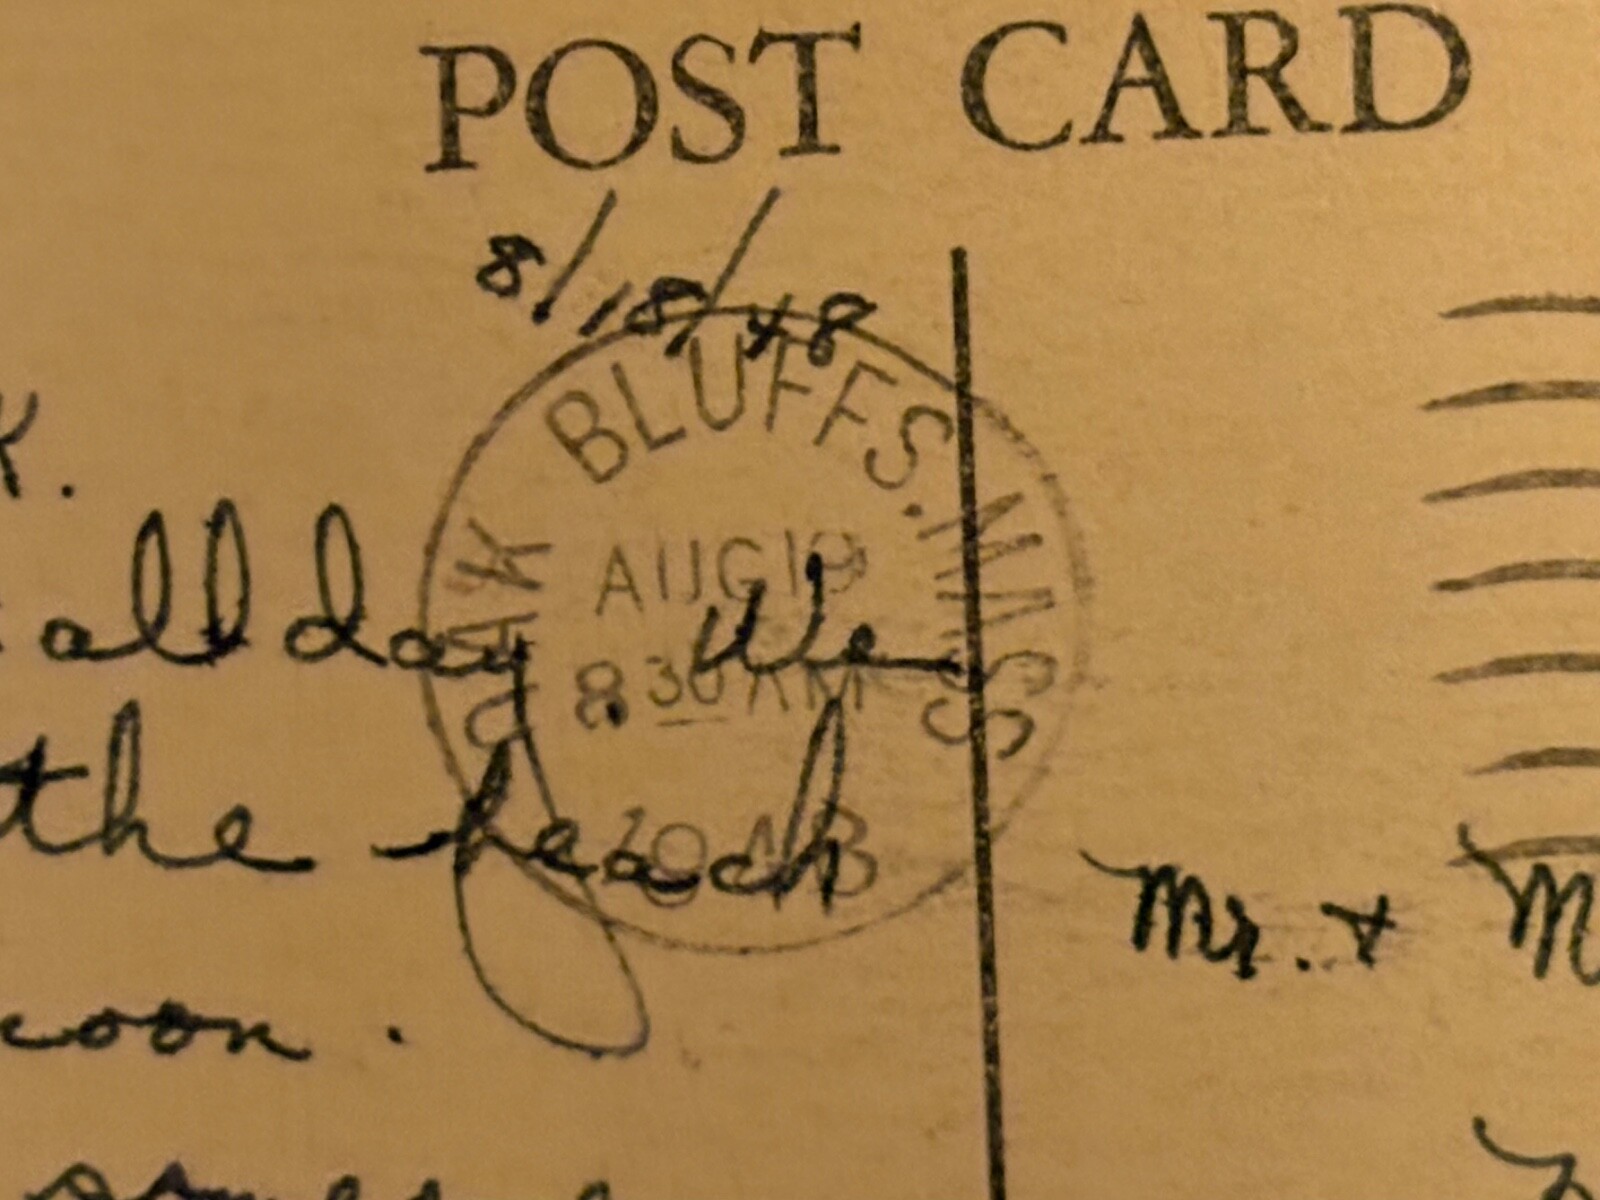 POST CARD
8/18/48
OAK BLUFFS. MASS
AUG 19
8 30 AM
K.
all day We
the beach
Mr. + M
noon.